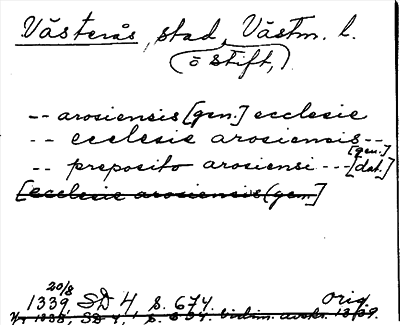 Västerås, stad, Västm. l.
o stift,
-- arosiensis [gen.] ecclesie
-- ecclesie arosiensis --
[gen.]
-- preposito arosiensi --- [dat.]
[ecclesie arosiensis (gen.]
20/8
1339 SD 4 s. 674. orig.